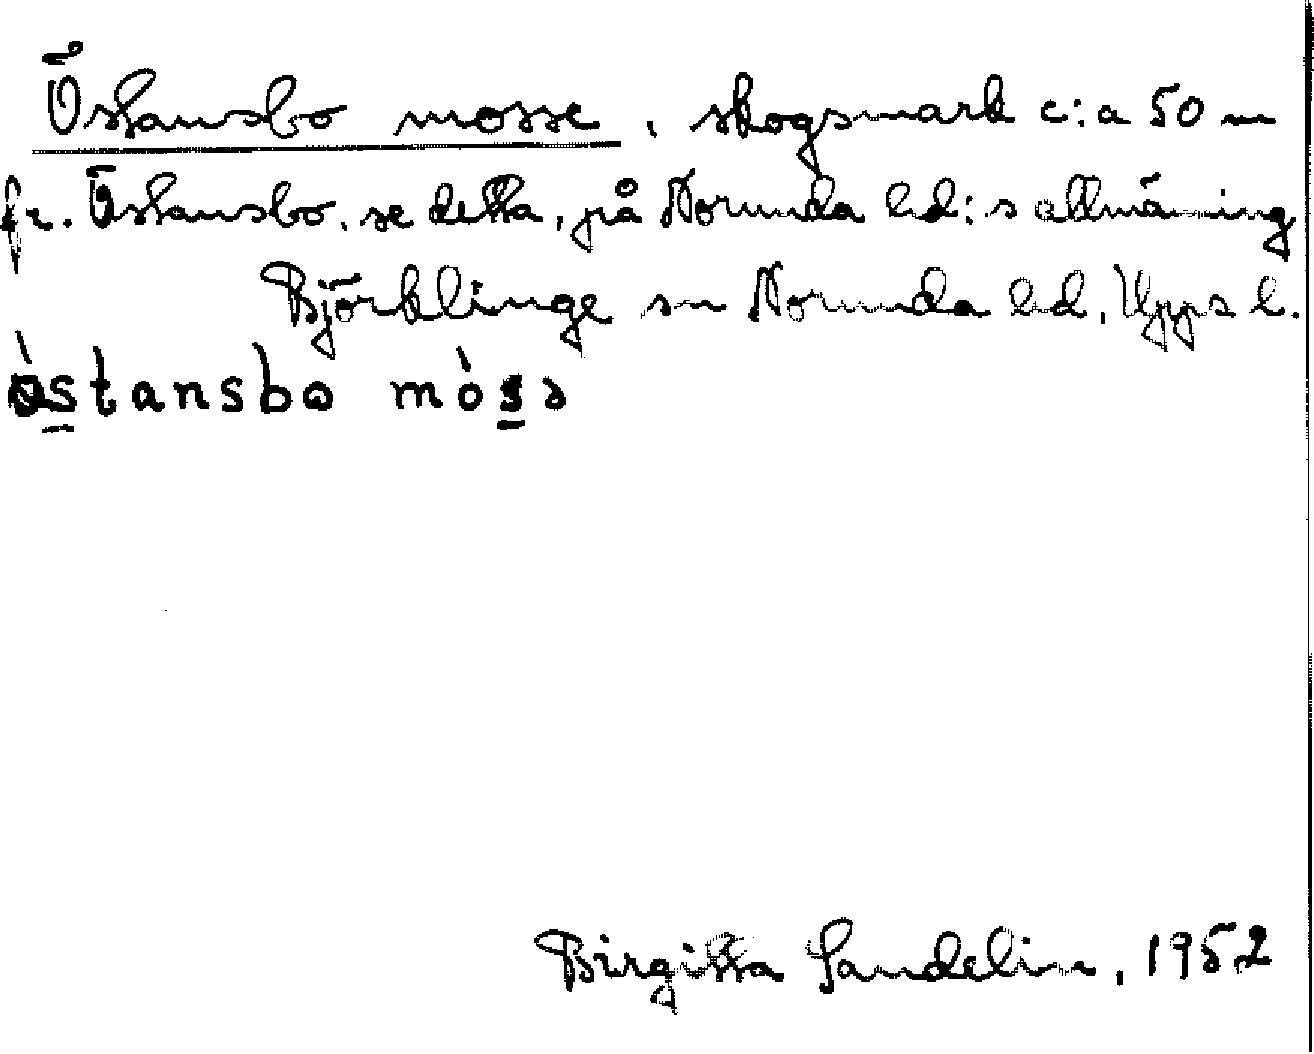 Östansbo mosse, skogsmark c:a 50 m
fr. Östansbo, se detta, på Norunda hd:s allmänning
Björklinge sn Norunda hd, Upps l.
ò̀s̲tansbo mòs̲ə
Birgitta Sandelin, 1952